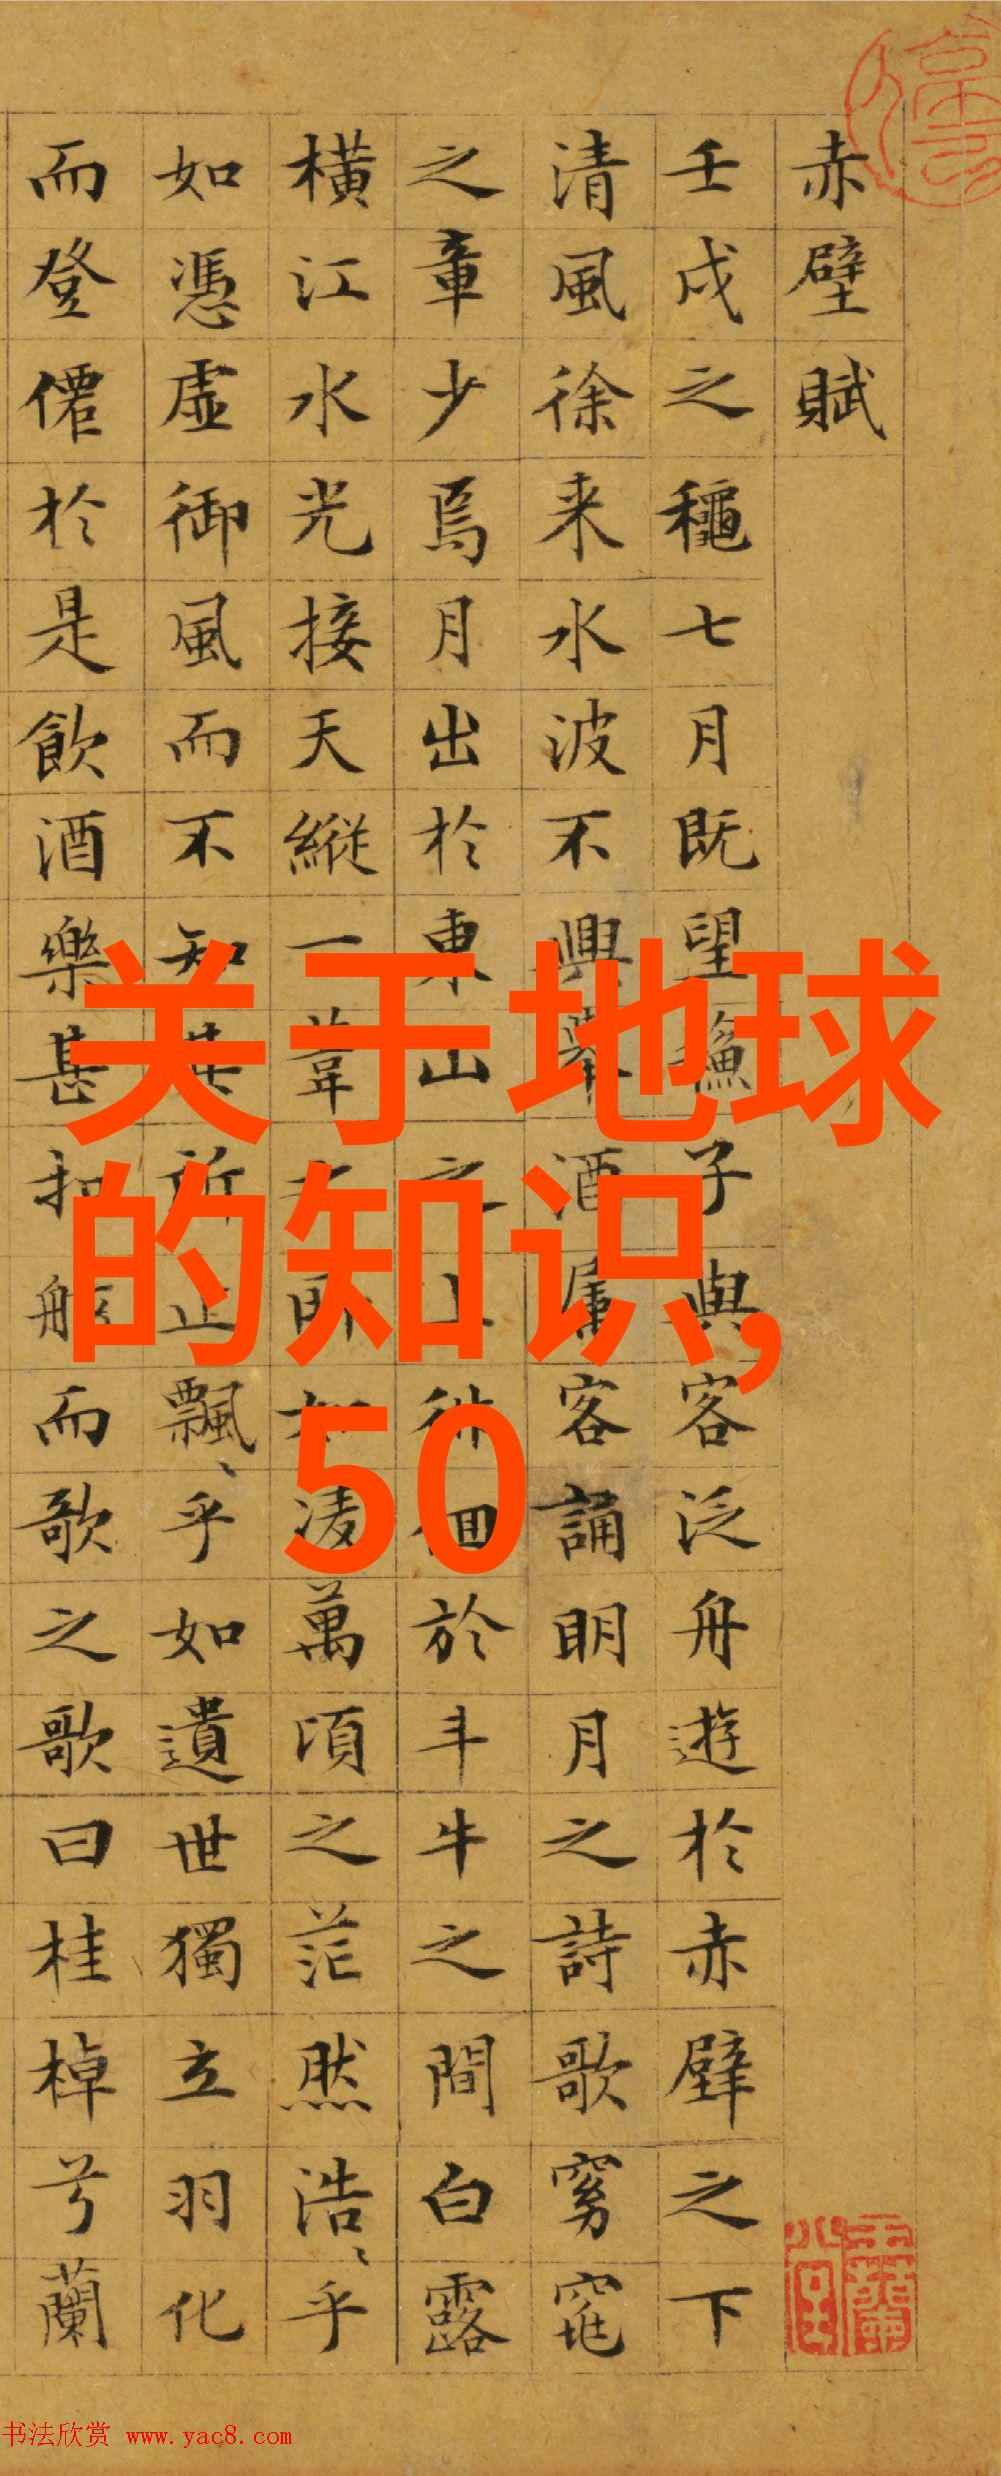 赤壁賦
壬戌之穐七月既望蘓子與客泛舟遊於赤壁之下
清風徐来水波不興舉酒属客誦明月之詩歌窈窕
之章少焉月出於東山之上徘徊於斗牛之間白露
橫江水光接天縱一葦之所如凌萬頃之茫然浩〻乎
如憑虛御風而不知其所止飄〻乎如遺世獨立羽化
而登僊於是飲酒樂甚扣舷而歌之歌曰桂棹兮蘭
关于地球
的知识,
50
书法欣赏 www.yac8.com